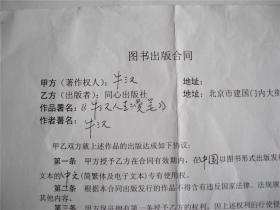 图书出版合同
甲方（著作权人）：牛汉 地址：
乙方（出版者）：同心出版社 地址：北京市建国门内大街
作品署名：《牛汉人生漫笔》
作者署名：牛汉
甲乙双方就上述作品的出版达成如下协议：
第一条 甲方授予乙方在合同有效期内，在中国以图书形式出版发
文本的中文（简繁体及电子文本）专有使用权。
第二条 根据本合同出版发行的作品不得含有违反国家法律、法规规
其内容。
第三条 甲方保证拥有第一条授予乙方的权利。因上述权利的行使侵